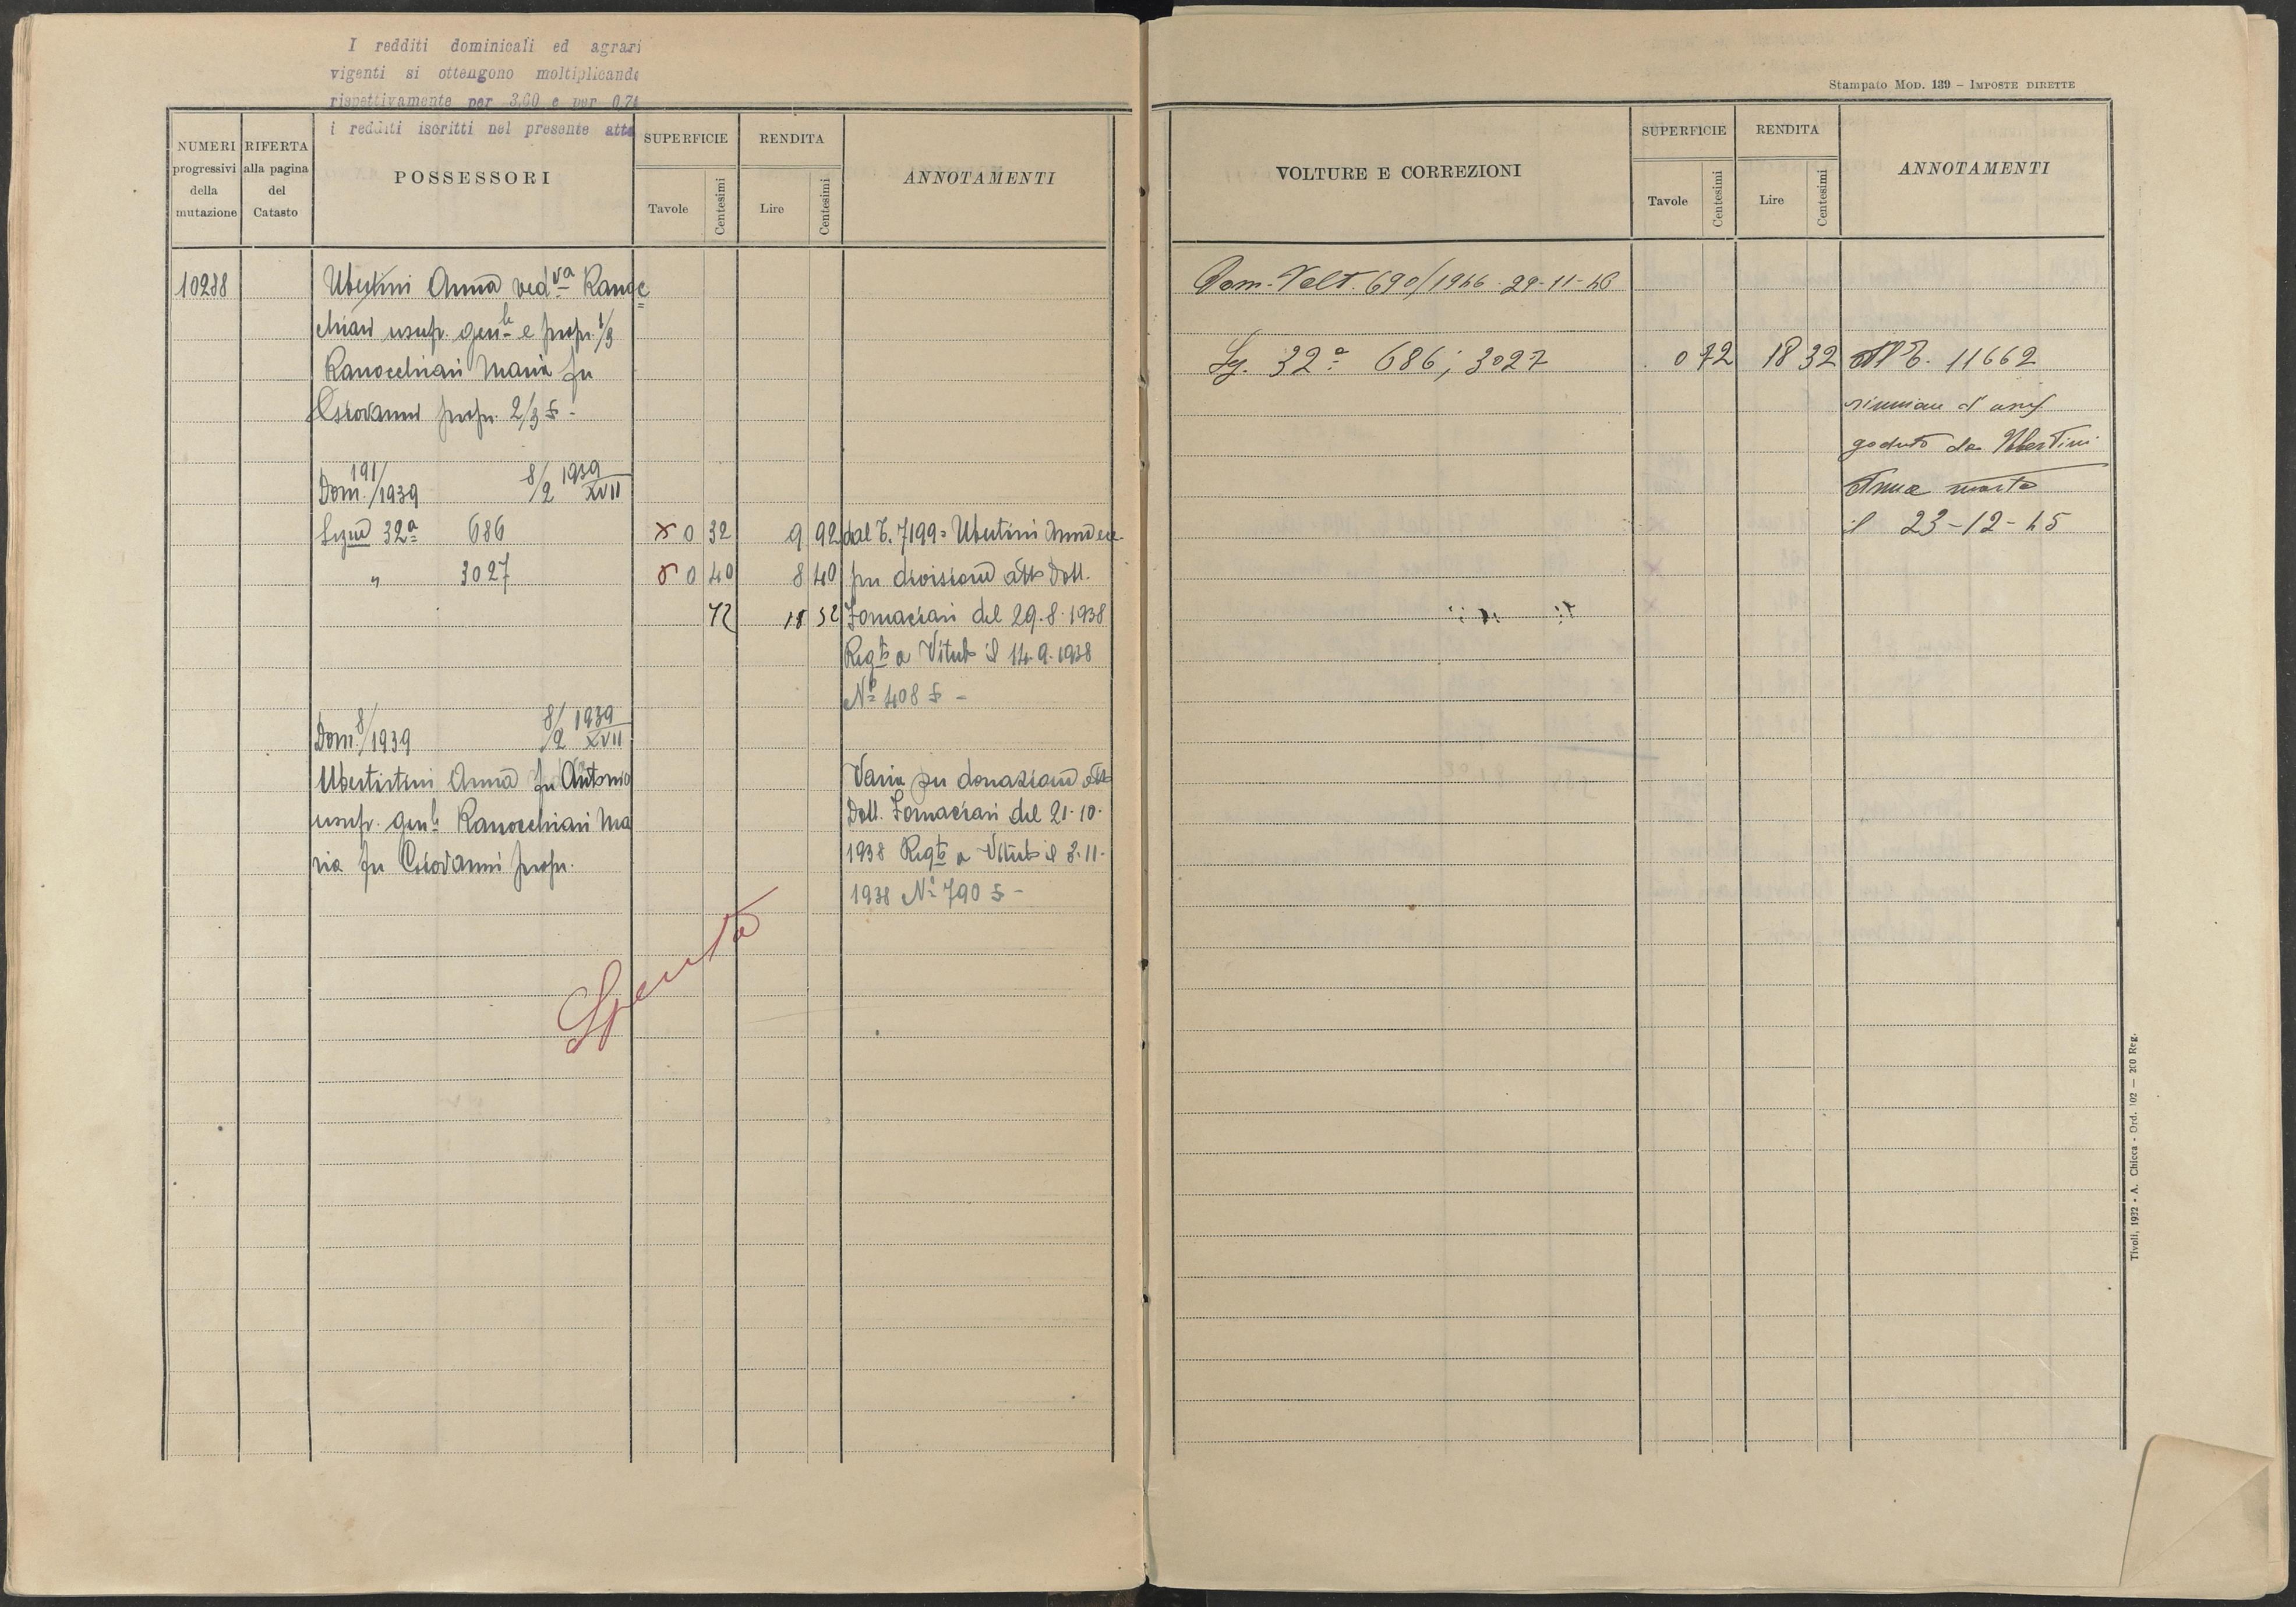 I redditi dominicali ed agrari
vigenti si ottengono moltiplicando
rispettivamente per 3,60 e per 0,74
i redditi iscritti nel presente atto
NUMERI progressivi della mutazione
RIFERTA alla pagina del Catasto
POSSESSORI
SUPERFICIE
Tavole
Centesimi
RENDITA
Lire
Centesimi
ANNOTAMENTI
10238
Ubertini Anna ved.va Ranoc
chiari usufr. gen.le e propr. 1/3
Ranocchiari Maria fu
Giovanni propr. 2/3
Dom. 191/1939 8/2 1939 XVII
Segue 32a 686 x 0 32 9 92 dal T. 7199 = Ubertini Anna ecc.
" 3027 0 40 8 40 per divisione atto Dott.
72 18 32 Fornaciari del 29.8.1938
Reg.to a Viterbo il 14.9.1938
No 408
Dom. 8/1939 8/2 1939 XVII
Ubertistini Anna fu Antonio
usufr. gen.le Ranocchiari Ma
ria fu Giovanni propr.
Varia per donazione atto
Dott. Fornaciari del 21-10-
1938 Reg.to a Viterbo il 3-11-
1938 No 790
Spenta
Stampato MOD. 139 – IMPOSTE DIRETTE
VOLTURE E CORREZIONI
SUPERFICIE
Tavole
Centesimi
RENDITA
Lire
Centesimi
ANNOTAMENTI
Dom. Volt. 690/1946 29-11-46
Sg. 32a 686; 3027 0 72 18 32 Al T. 11662
riunione d'usuf
goduto da Ubertini
Anna morta
il 23-12-45
Tivoli, 1932 - A. Chicca - Ord. 102 — 200 Reg.